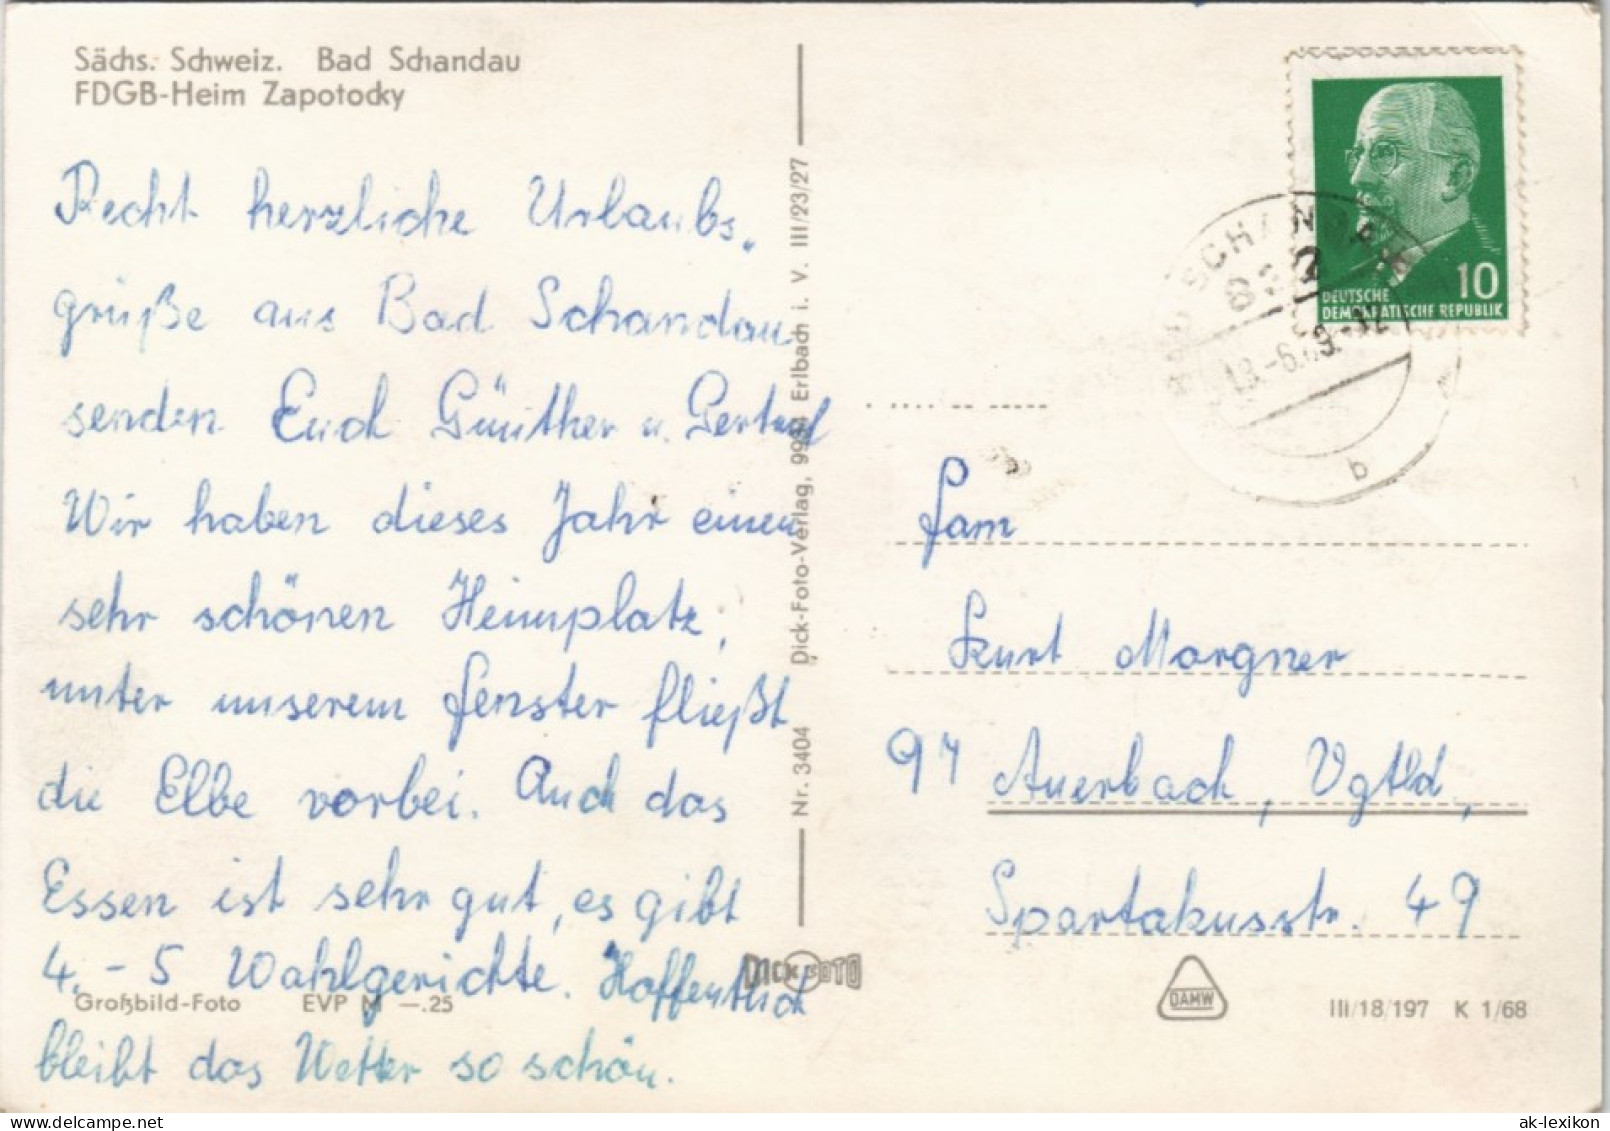 Sächs. Schweiz. Bad Schandau
FDGB-Heim Zapotocky
Recht herzliche Urlaubs-
grüße aus Bad Schandau
senden Euch Günther u. Gertrud
Wir haben dieses Jahr einen
sehr schönen Heimplatz,
unter unserem Fenster fließt
die Elbe vorbei. Auch das
Essen ist sehr gut, es gibt
4.-5 Wahlgerichte. Hoffentlich
bleibt das Wetter so schön.
Großbild-Foto EVP M -.25
Nr. 3404 Dick-Foto-Verlag, 9934 Erlbach i. V. III/23/27
DICK FOTO
10
DEUTSCHE
DEMOKRATISCHE REPUBLIK
BAD SCHANDAU
b
Fam
Kurt Morgner
97 Auerbach, Vgtld,
Spartakusstr. 49
DAMW
III/18/197 K 1/68
ak-lexikon